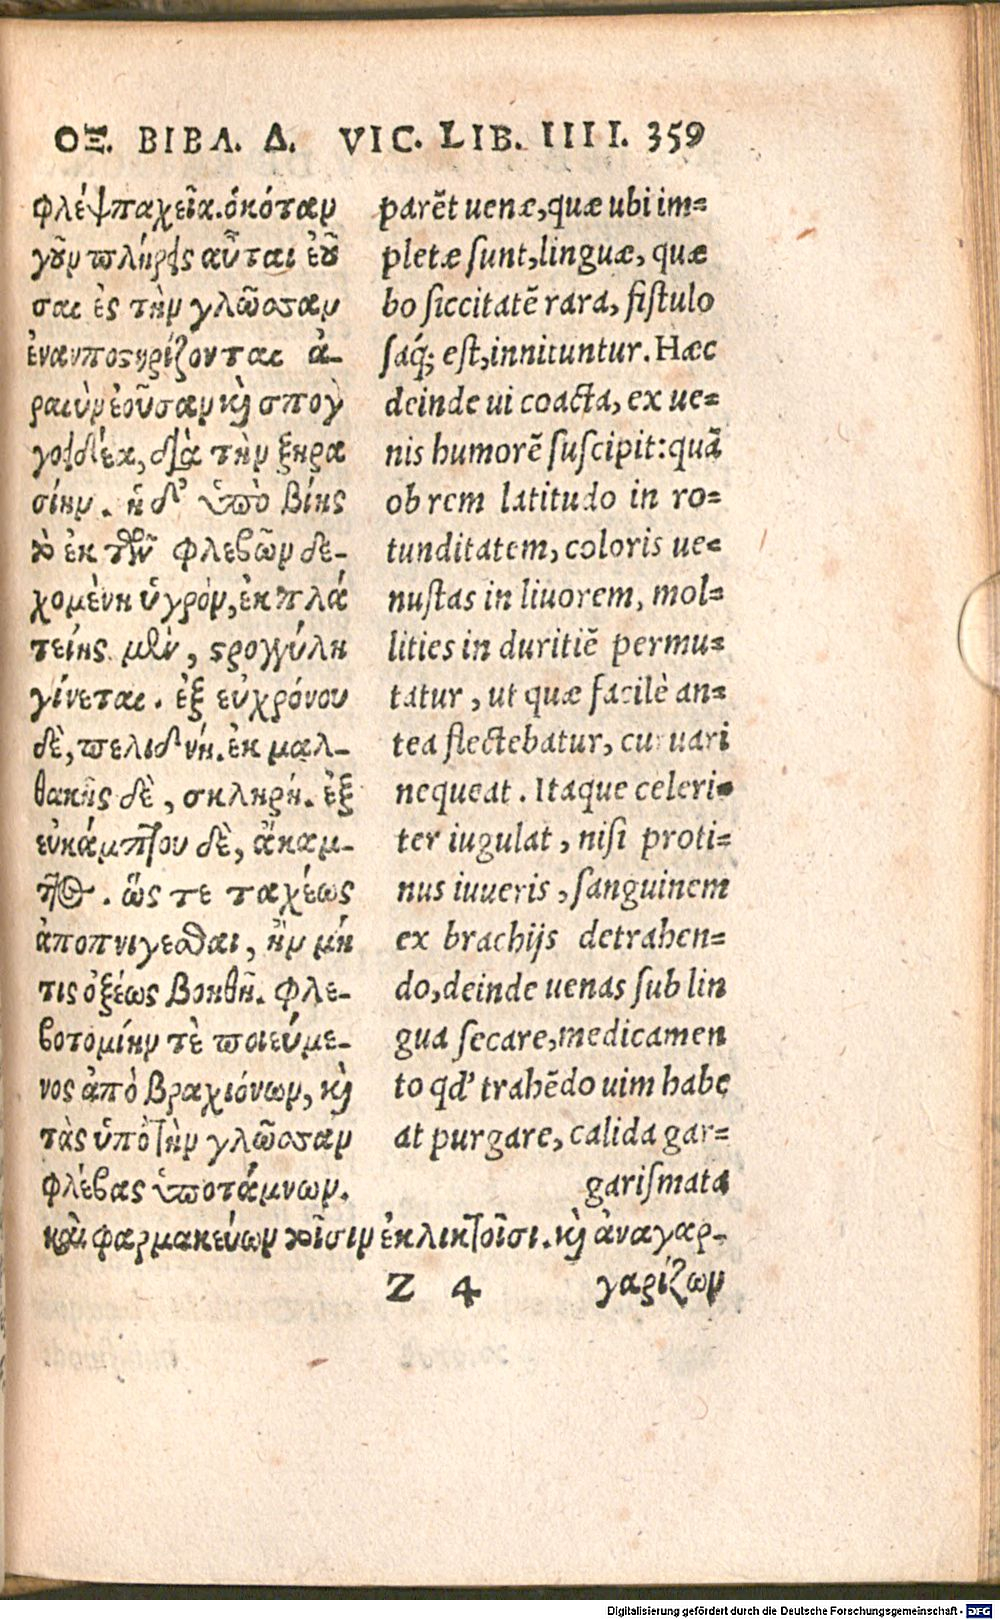 ΟΞ. ΒΙΒΛ. Δ. VIC. LIB. IIII. 359
φλὲψ παχεῖα. ὁκόταν
γοῦν πλήρεις αὗται ἐοῦ
σαι ἐς τὴν γλῶσσαν
ἐναποστηρίζονται ἀ-
ραιὴν ἐοῦσαν καὶ σπογ
γοειδέα, διὰ τὴν ξηρα
σίην. ἡ δ' ὑπὸ βίης
τὸ ἐκ τῶν φλεβῶν δε-
χομένη ὑγρὸν, ἐκ πλα
τείης μὲν, στρογγύλη
γίνεται. ἐξ εὐχρόνου
δὲ, πελιδνή. ἐκ μαλ-
θακῆς δὲ, σκληρή. ἐξ
εὐκάμπτου δὲ, ἄκαμ-
πτος. ὥς τε ταχέως
ἀποπνίγεσθαι, ἢν μή
τις ὀξέως βοηθῇ. φλε-
βοτομίην τὲ ποιεύμε-
νος ἀπὸ βραχιόνων, καὶ
τὰς ὑπὸ τὴν γλῶσσαν
φλέβας ὑποτάμνων.
καὶ φαρμακεύων τοῖσιν ἐκλικτοῖσι. καὶ ἀναγαρ-
parēt uenæ, quæ ubi im=
pletæ sunt, linguæ, quæ
bo siccitatē rara, fistulo
saq́; est, innituntur. Hæc
deinde ui coacta, ex ue=
nis humorē suscipit: quā
ob rem latitudo in ro=
tunditatem, coloris ue=
nustas in liuorem, mol=
lities in duritiē permu=
tatur, ut quæ facilè an=
tea flectebatur, curuari
nequeat. Itaque celeri=
ter iugulat, nisi proti=
nus iuueris, sanguinem
ex brachijs detrahen=
do, deinde uenas sub lin
gua secare, medicamen
to qd' trahēdo uim habe
at purgare, calida gar=
garismata
Z 4 γαρίζων
Digitalisierung gefördert durch die Deutsche Forschungsgemeinschaft - DFG